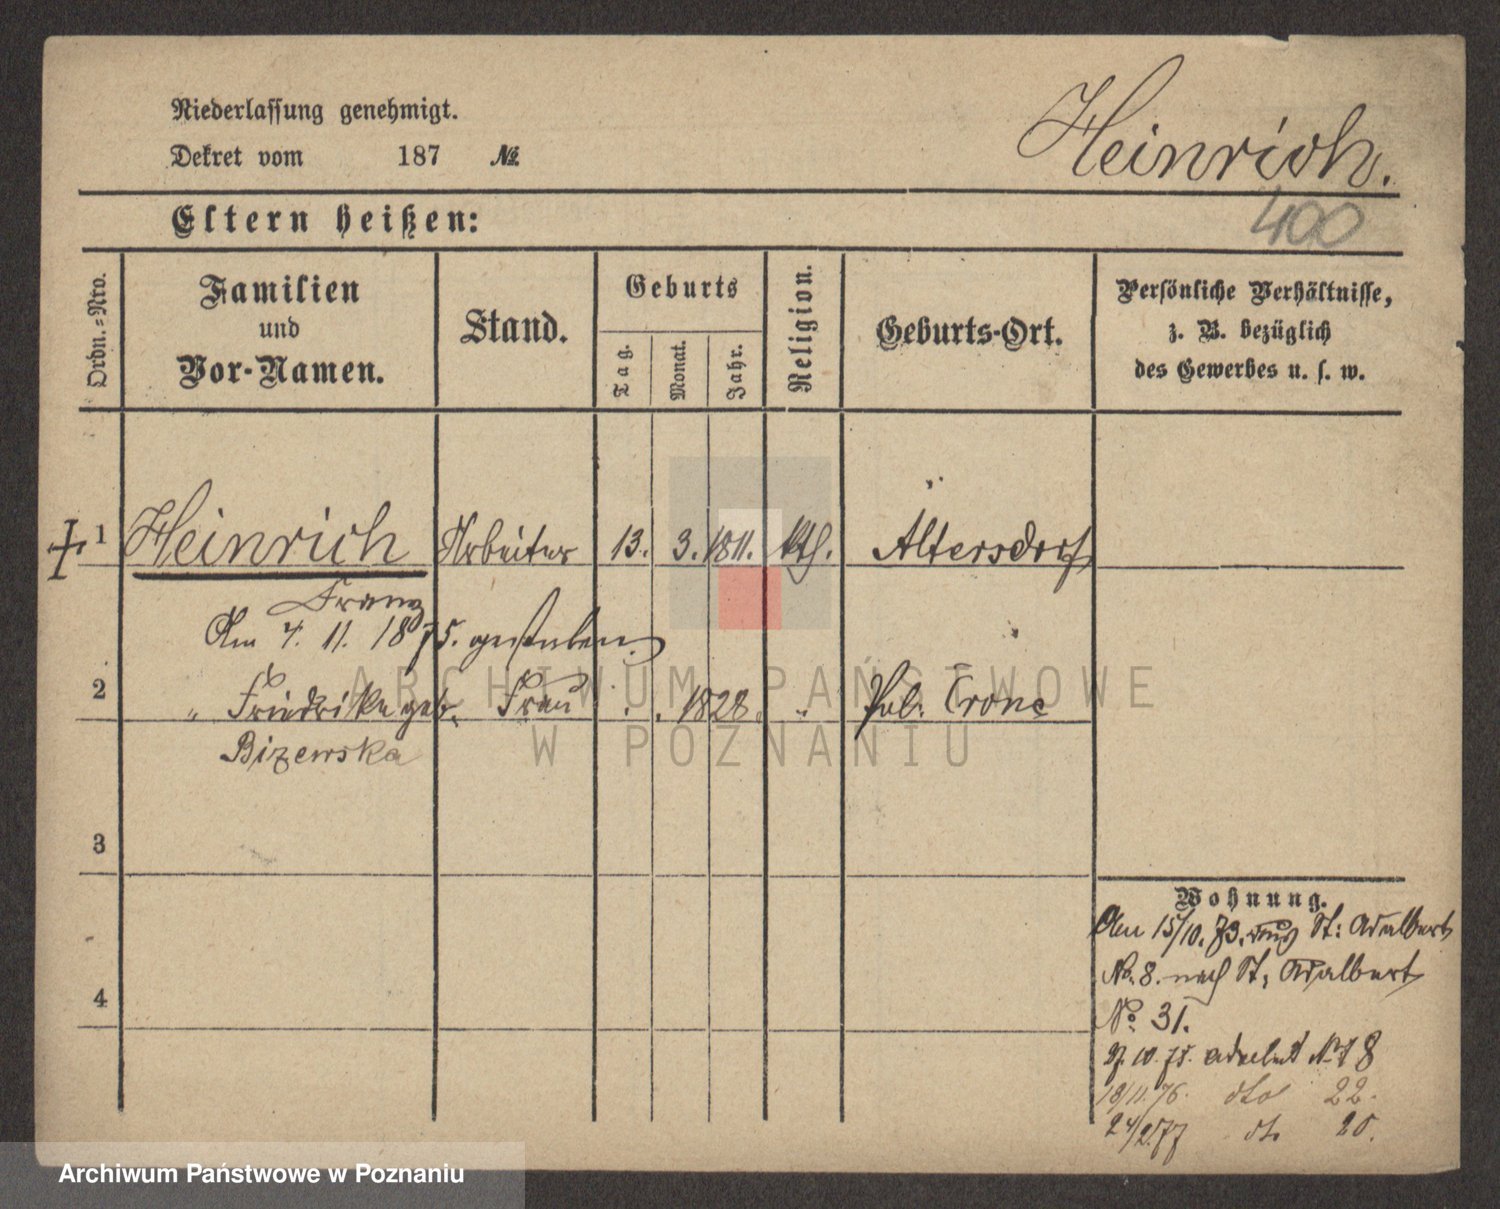 Niederlassung genehmigt.
Dekret vom 187 №
Heinrich.
Eltern heißen:
400
Ordn.=Nro.
Familien
und
Vor-Namen.
Stand.
Geburts
Tag.
Monat.
Jahr.
Religion.
Geburts-Ort.
Persönliche Verhältnisse,
z. B. bezüglich
des Gewerbes u. s. w.
1 Heinrich Arbeiter 13. 3. 1811. kth. Altersdorf
Franz
Am 4. 11. 1875. gestorben.
2 " Friedrike geb. Frau 1828. " Crone
Bizewska
3
4
Wohnung.
Am 15/10. 73. von St: Adalbert
No. 8. nach St. Adalbert
No. 31.
10. 75. Adalbert No 18
18/11. 76. dto 22.
24/2. 77 dto 20.
ARCHIWUM PAŃSTWOWE
W POZNANIU
Archiwum Państwowe w Poznaniu